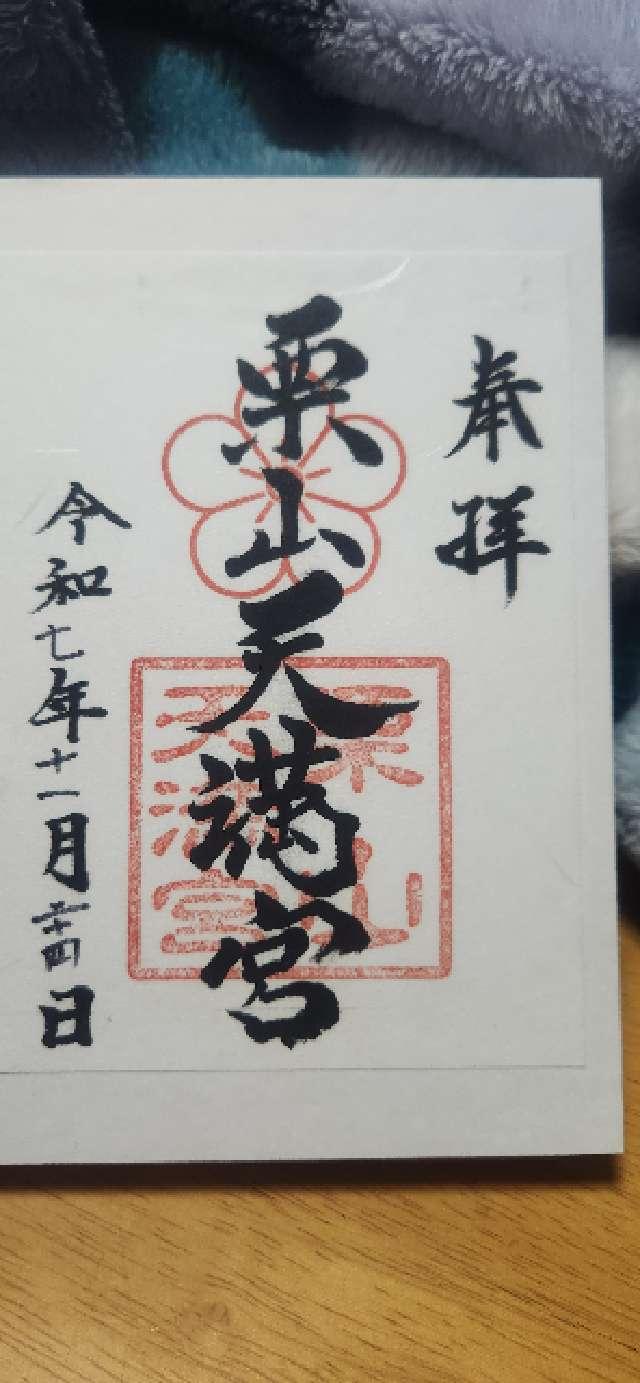 奉拝
栗山天満宮
栗山
天満宮
令和七年十一月二十四日